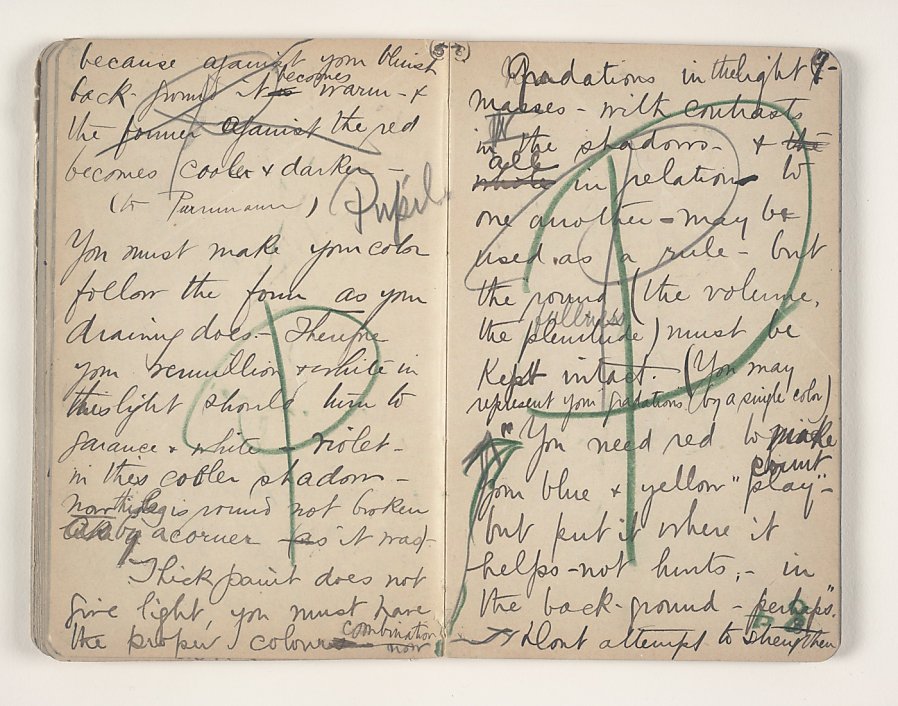 because against your bluish
back-ground it is becomes warm - &
the former against the red
becomes cooler & darker -
(to Purrmann) Pupil
You must make your color
follow the form as your
drawing does - Therefore
your vermillion & white in
this light should turn to
garance & white - violet -
in this cooler shadow -
now this leg is round not broken
by a corner as it was)
Thick paint does not
give light, you must have
the proper colour combination
now
(52)
Gradations in the light
masses - with contrasts
in the shadows - & the
whole all in relation to
one another - may be
used as a rule - but
the round (the volume,
fullness
the plenitude) must be
Kept intact. (You may
represent your gradations (by a single color)
"You need red to make
count
your blue & yellow "play" -
but put it where it
helps - not hurts, - in
the back-ground - perhaps"
Dont attempt to strengthen